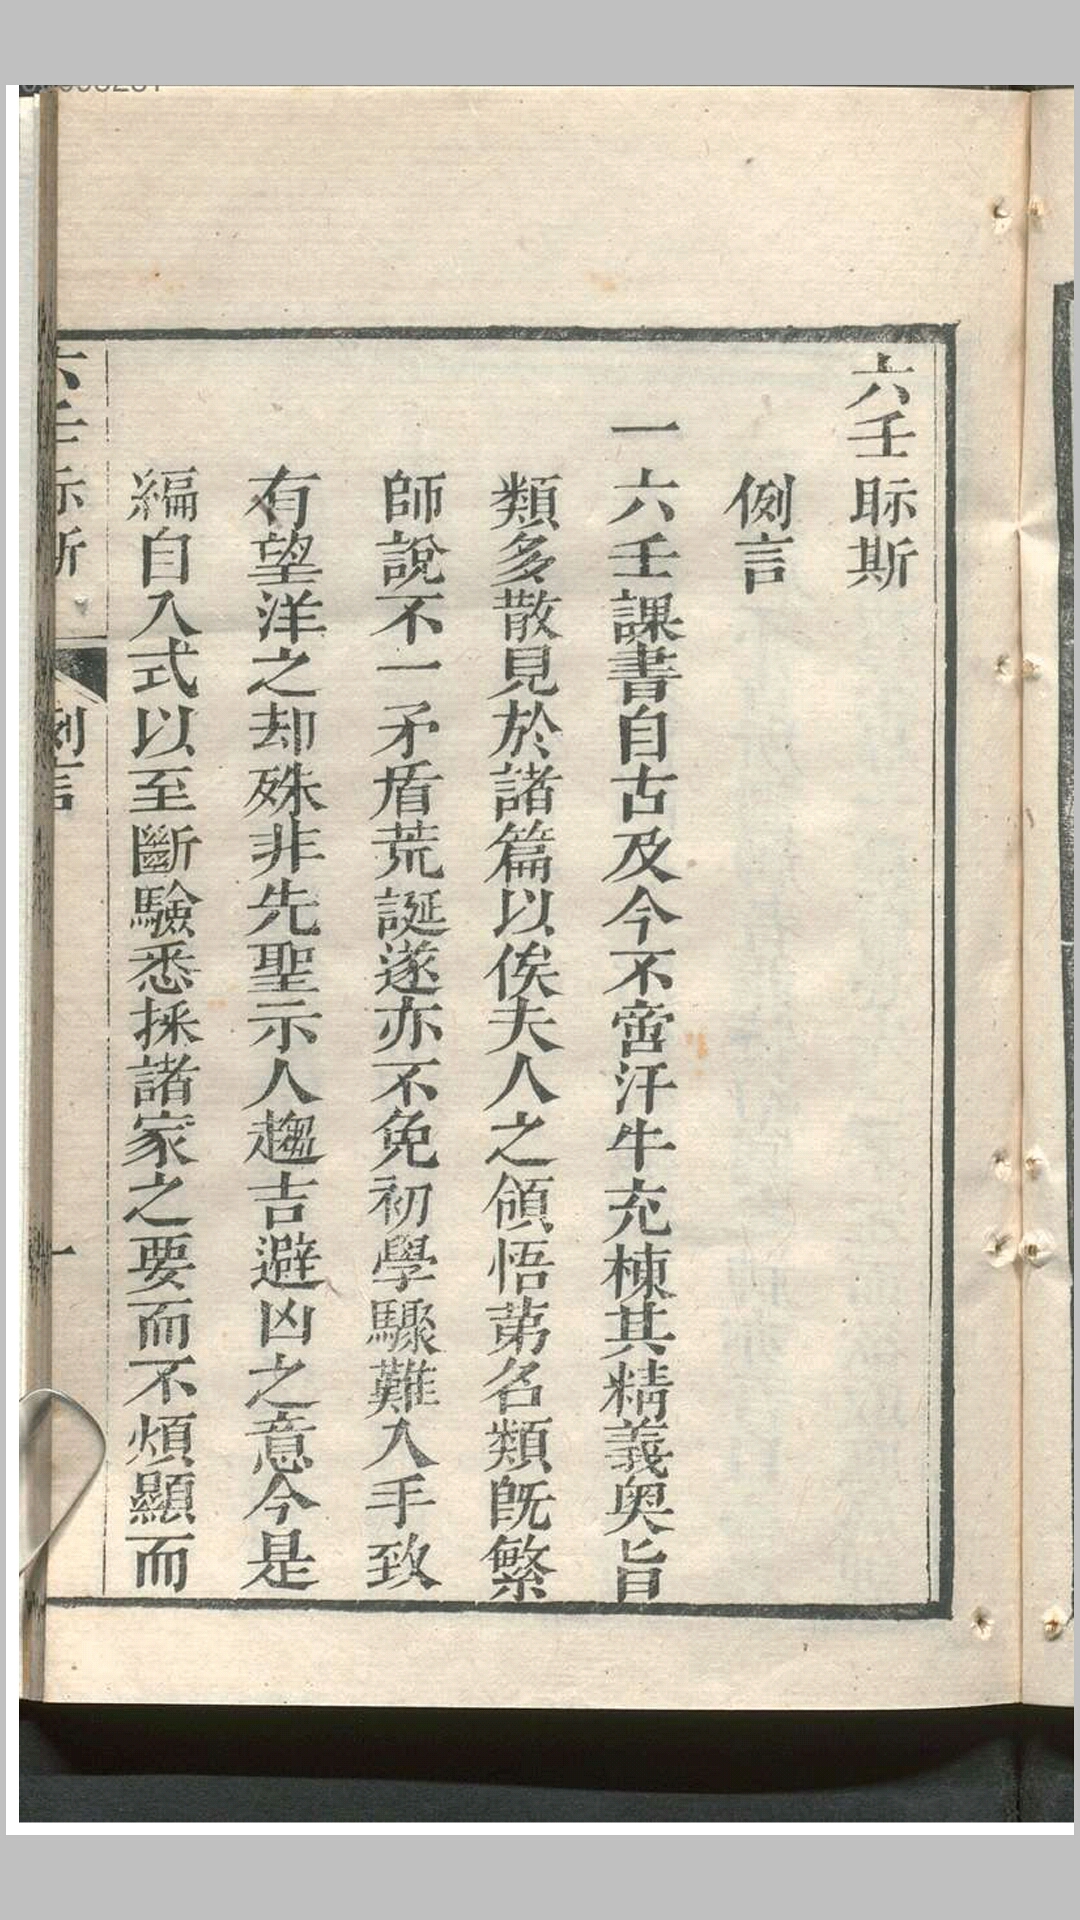 六壬眎斯
例言
一六壬課書自古及今不啻汗牛充棟其精義奧旨
類多散見於諸篇以俟夫人之領悟苐名類旣繁
師說不一矛盾荒誕遂亦不免初學驟難入手致
有望洋之却殊非先聖示人趨吉避凶之意今是
編自入式以至斷驗悉採諸家之要而不煩顯而
六壬眎斯
例言
一